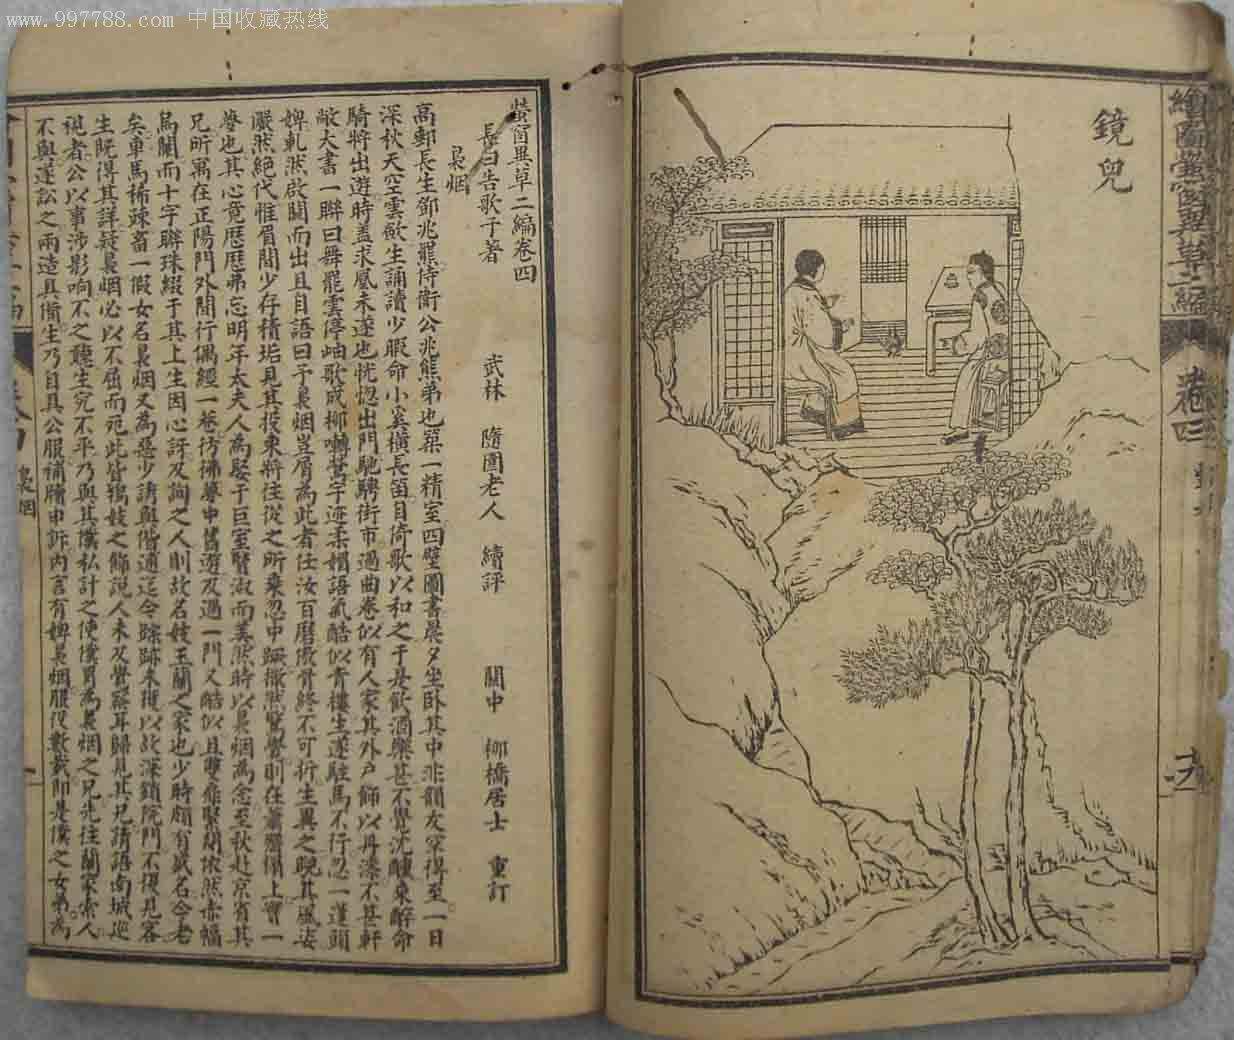 www.997788.com 中国收藏热线
鏡兒
繪圖螢窗異草二編
卷四
螢窗異草二編卷四
長白告歌子著
武林 隨園老人 續評
關中 柳橋居士 重訂
梟烟
高郵長生鄧兆羆侍衛公兆熊弟也築一精室四壁圖書晨夕坐臥其中非韻友罕得至一日
深秋天空雲歛生誦讀少暇命小奚橫長笛自倚歌以和之于是飲酒樂甚不覺沈醺乘醉命
騎將出遊時蓋求凰未遂也恍惚出門馳騁街市過曲巷似有人家其外戶飾以丹漆不甚軒
敞大書一聯曰舞罷雲停岫歌成柳囀鶯字迹柔媚語氣酷似青樓生遂駐馬不行忽一蓬頭
婢軋然啟關而出且自語曰予梟烟豈屑為此者任汝百磨傲骨終不可折生異之睨其風姿
儼然絕代惟眉間少存積垢見其投東將往從之所乘忽中蹶撒然驚覺則在蕭齋榻上寶一
夢也其心竟歷歷弗忘明年太夫人為娶于巨室賢淑而美然時以梟烟為念至秋赴京省其
兄所寓在正陽門外閒行偶經一巷彷彿夢中舊遊及過一門又酷似且雙扉緊閉依然赤幅
烏闌而十字聯珠綴于其上生因心訝及詢之人則故名妓玉蘭之家也少時頗有盛名今老
矣車馬稀疎畜一假女名梟烟又為惡少誘與偕遁迄今踪跡未獲以故深鎖院門不復見客
生既得其詳疑梟烟必以不屈而死此皆鴇妓之飾說人未及覺察耳歸見其兄請語南城巡
視者公以事涉影响不之聽生究不平乃與其僕私計之使僕冒為梟烟之兄先往蘭家索人
不與遂訟之兩造具備生乃自具公服補牘申訴內言有婢梟烟服役數載即是僕之女弟為
梟烟